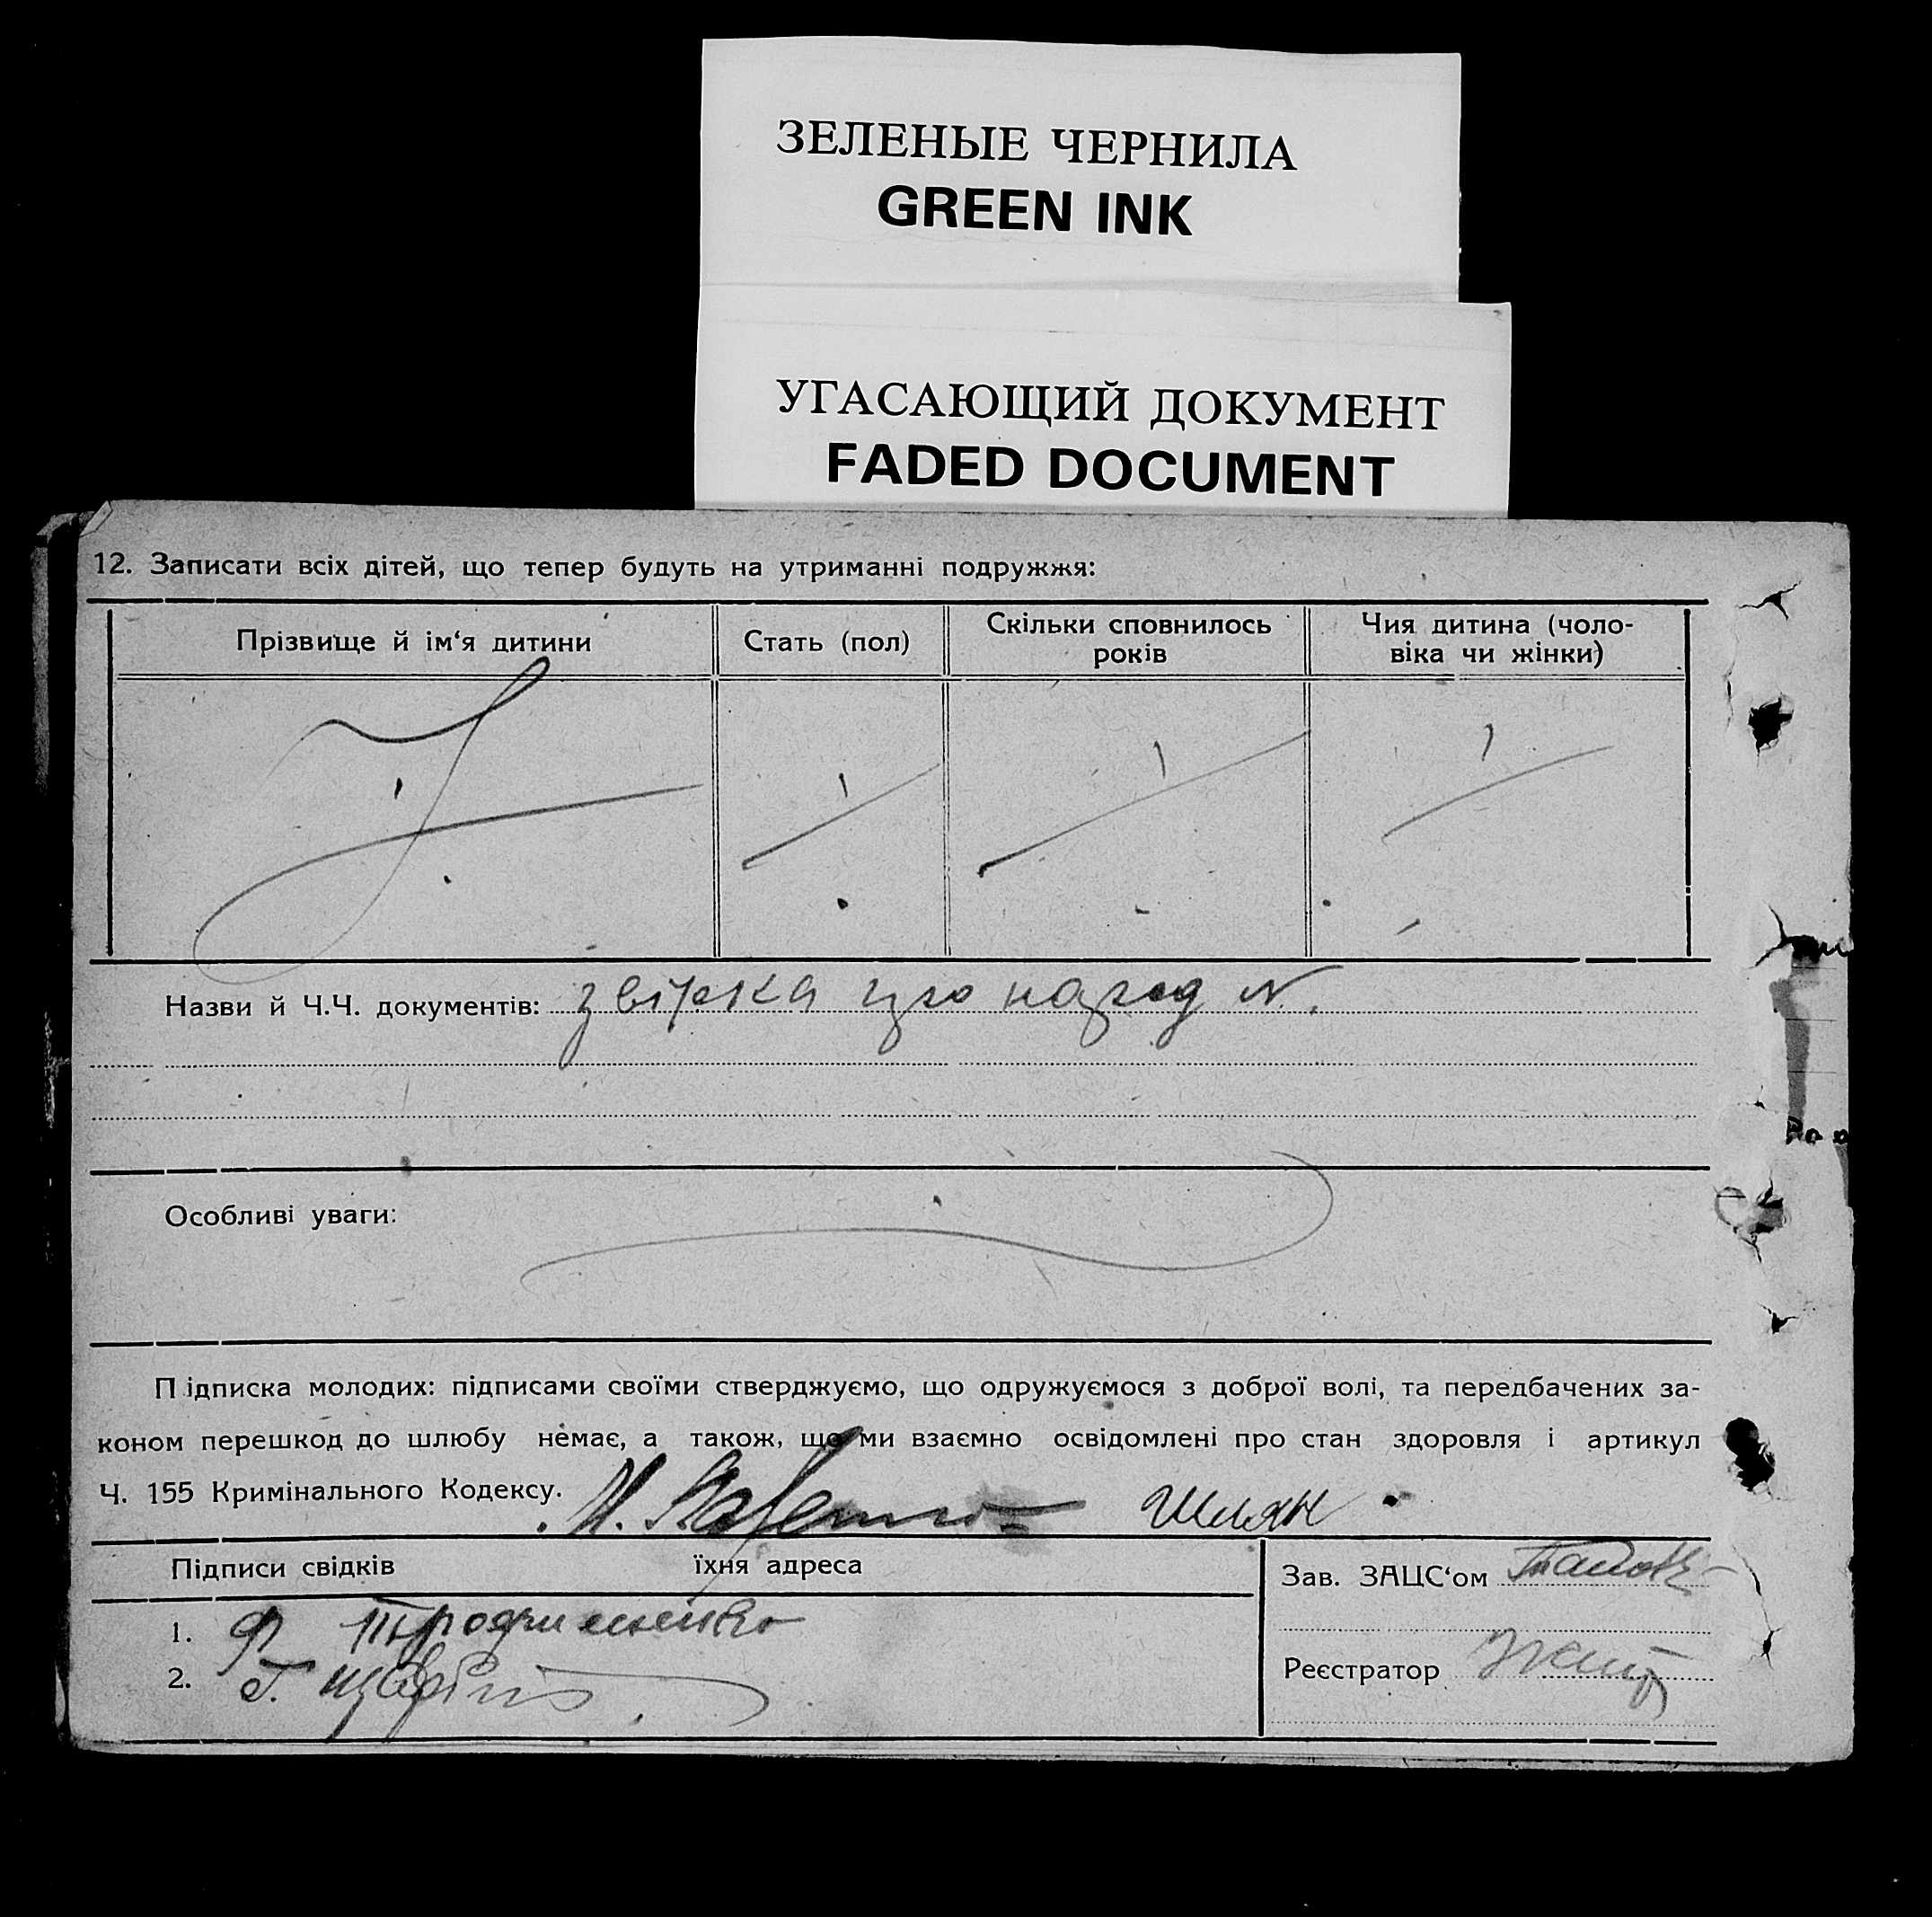 ЗЕЛЕНЫЕ ЧЕРНИЛА
GREEN INK
УГАСАЮЩИЙ ДОКУМЕНТ
FADED DOCUMENT
12. Записати всіх дітей, що тепер будуть на утриманні подружжя:
Прізвище й ім‘я дитини
Стать (пол)
Скільки сповнилось
років
Чия дитина (чоло-
віка чи жінки)
Назви й Ч.Ч. документів: N.
Особливі уваги:
Підписка молодих: підписами своїми стверджуємо, що одружуємося з доброї волі, та передбачених за-
коном перешкод до шлюбу немає, а також, що ми взаємно освідомлені про стан здоровля і артикул
Ч. 155 Кримінального Кодексу. Шлян
Підписи свідків їхня адреса
Зав. ЗАЦС‘ом
1. Ф Трофименко
2. Г.
Реєстратор